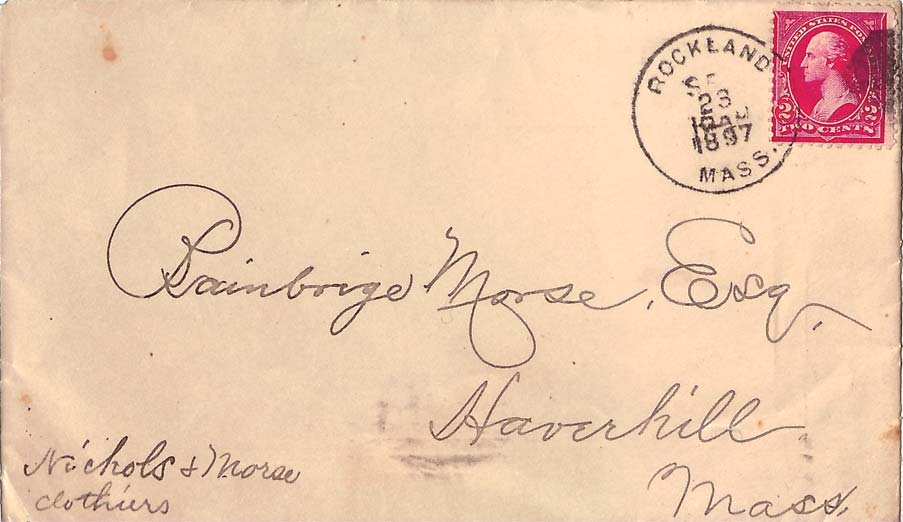 ROCKLAND
SE
23
1897
MASS.
UNITED STATES POS
2 2
TWO CENTS
Bainbrige Morse, Esq,
Haverhill
Mass,
Nichols & Morse
clothiers